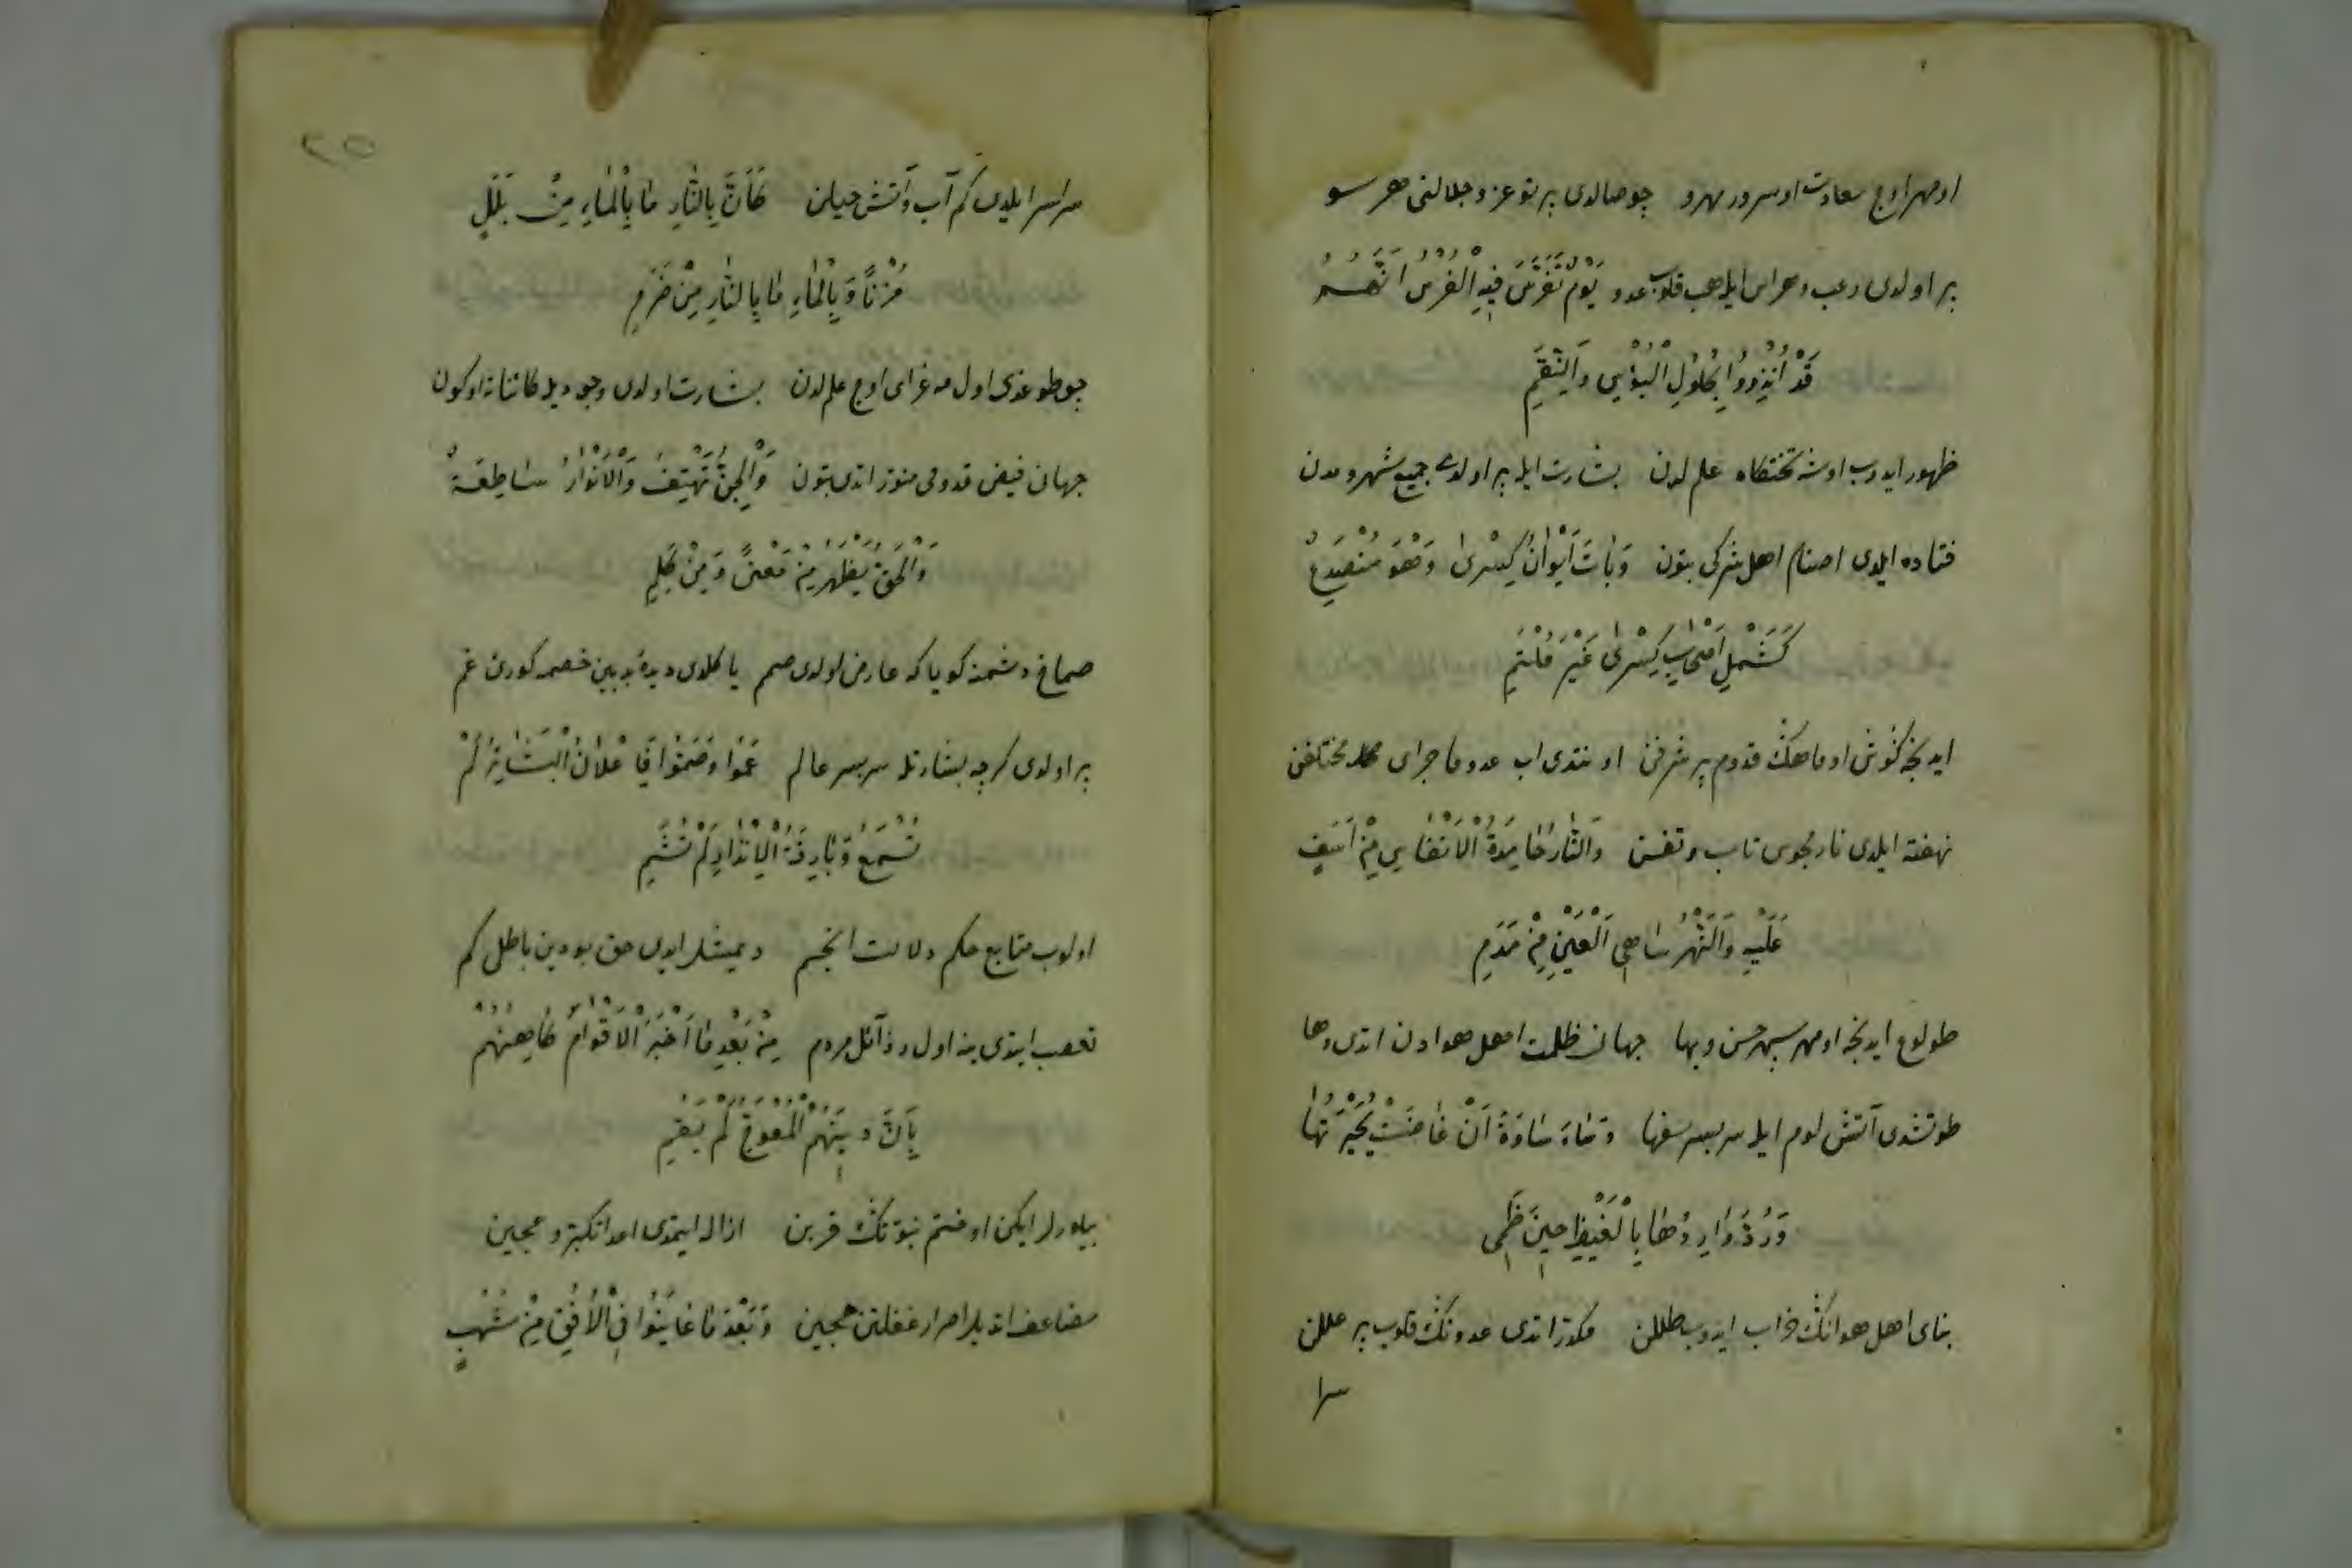 او مهر اوج سعادت او سرور مهرو چو صالدی پرتو عز و جلالنی هر سو
پر اولدی رعب و هراس ایله هب قلوب عدو یَوْمٌ تَفَرَّسَ فِیهِ الْفُرْسُ اَنَّهُمُ
قَدْ اُنْذِرُوا بِحُلُولِ الْبُؤْسِ وَالنِّقَمِ
ظهور ایدوب اوشه تختکاه علم لدن بشارت ایله پر اولدی جمیع شهر و مدن
فتاده ایلدی اصنام اهل شرکی بتون وَبَاتَ اَیْوَانُ کِسْرٰی وَهْوَ مُنْصَدِعٌ
کَشَمْلِ اَصْحَابِ کِسْرٰی غَیْرَ مُلْتَئِمِ
ایدنجه کوش او ماهک قدوم پر شرفن اونتدی اب عدو ماجرای مختلفن
نهفته ایلدی نار مجوس تاب و تفسن وَالنَّارُ خَامِدَةُ الْاَنْفَاسِ مِنْ اَسَفٍ
عَلَیْهِ وَالنَّهْرُ سَاهِی الْعَیْنِ مِنْ سَدَمِ
طولوع ایدنجه او مهر سپهر حسن و بها جهان ظلمت اهل هوادن اتدی رها
طوتشدی آتش لوم ایله سربسر سفها وَسَاءَ سَاوَةَ اَنْ غَاضَتْ بُحَیْرَتُهَا
وَرُدَّ وَارِدُهَا بِالْغَیْظِ حِینَ ظَمِی
بنای اهل هوانک خراب ایدوب طللن مکدر اتدی عدونک قلوب پر عللن
سرا
٢٥
سراسر ایلدی کم آب و آتش حیلن کَاَنَّ بِالنَّارِ مَا بِالْمَاءِ مِنْ بَلَلٍ
حُزْنًا وَبِالْمَاءِ مَا بِالنَّارِ مِنْ ضَرَمِ
چو طوغدی اول مه غرای اوج علم لدن بشارت اولدی وجودیله کائناته او کون
جهان فیض قدومی منور اتدی بتون وَالْجِنُّ تَهْتِفُ وَالْاَنْوَارُ سَاطِعَةٌ
وَالْحَقُّ یَظْهَرُ مِنْ مَعْنًی وَمِنْ کَلِمِ
صماخ دشمنه کویا که عارض اولدی صمم یا کلدی دیدهٔ بدبین خصمه کورن غم
پر اولدی کرچه بشارتله سربسر عالم عَمُوا وَصَمُّوا فَاِعْلَانُ الْبَشَائِرِ لَمْ
تُسْمَعْ وَبَارِقَةُ الْاِنْذَارِ لَمْ تُشَمِ
اولوب متابع حکم دلالت انجم دیمیشلر ایدی حق بودین باطل کم
تعصب ایتدی ینه اول رذآئل مردم مِنْ بَعْدِ مَا اَخْبَرَ الْاَقْوَامَ کَاهِنُهُمْ
بِاَنَّ دِینَهُمُ الْمُعْوَجَّ لَمْ یَقُمِ
بیلورلر ایکن او ختم نبوتک قربن ازاله ایتمدی اعدا تکبر و عجبن
مضاعف اتدیلر اصرار غفلتن هجبن وَبَعْدَ مَا عَایَنُوا فِی الْاُفُقِ مِنْ شُهُبٍ